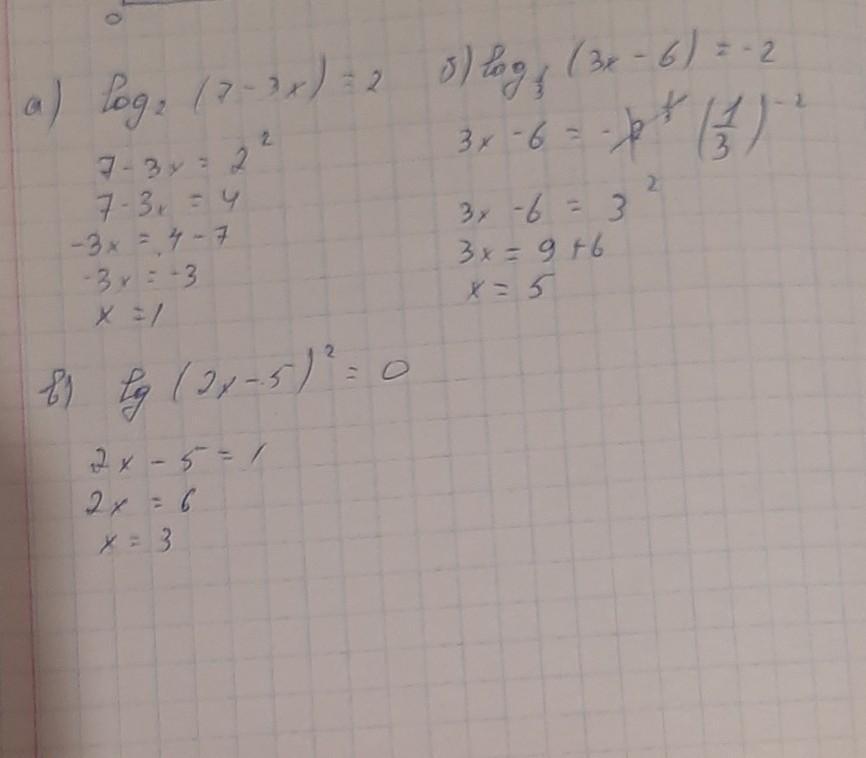 а) log₂ (7 - 3x) = 2
7 - 3x = 2²
7 - 3x = 4
-3x = 4 - 7
-3x = -3
x = 1
б) log_{1/3} (3x - 6) = -2
3x - 6 = (1/3)⁻²
3x - 6 = 3²
3x = 9 + 6
x = 5
в) lg (2x - 5)² = 0
2x - 5 = 1
2x = 6
x = 3